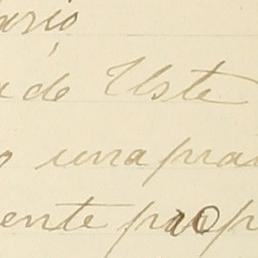 ario
a de Uste
o una pra
ente prop